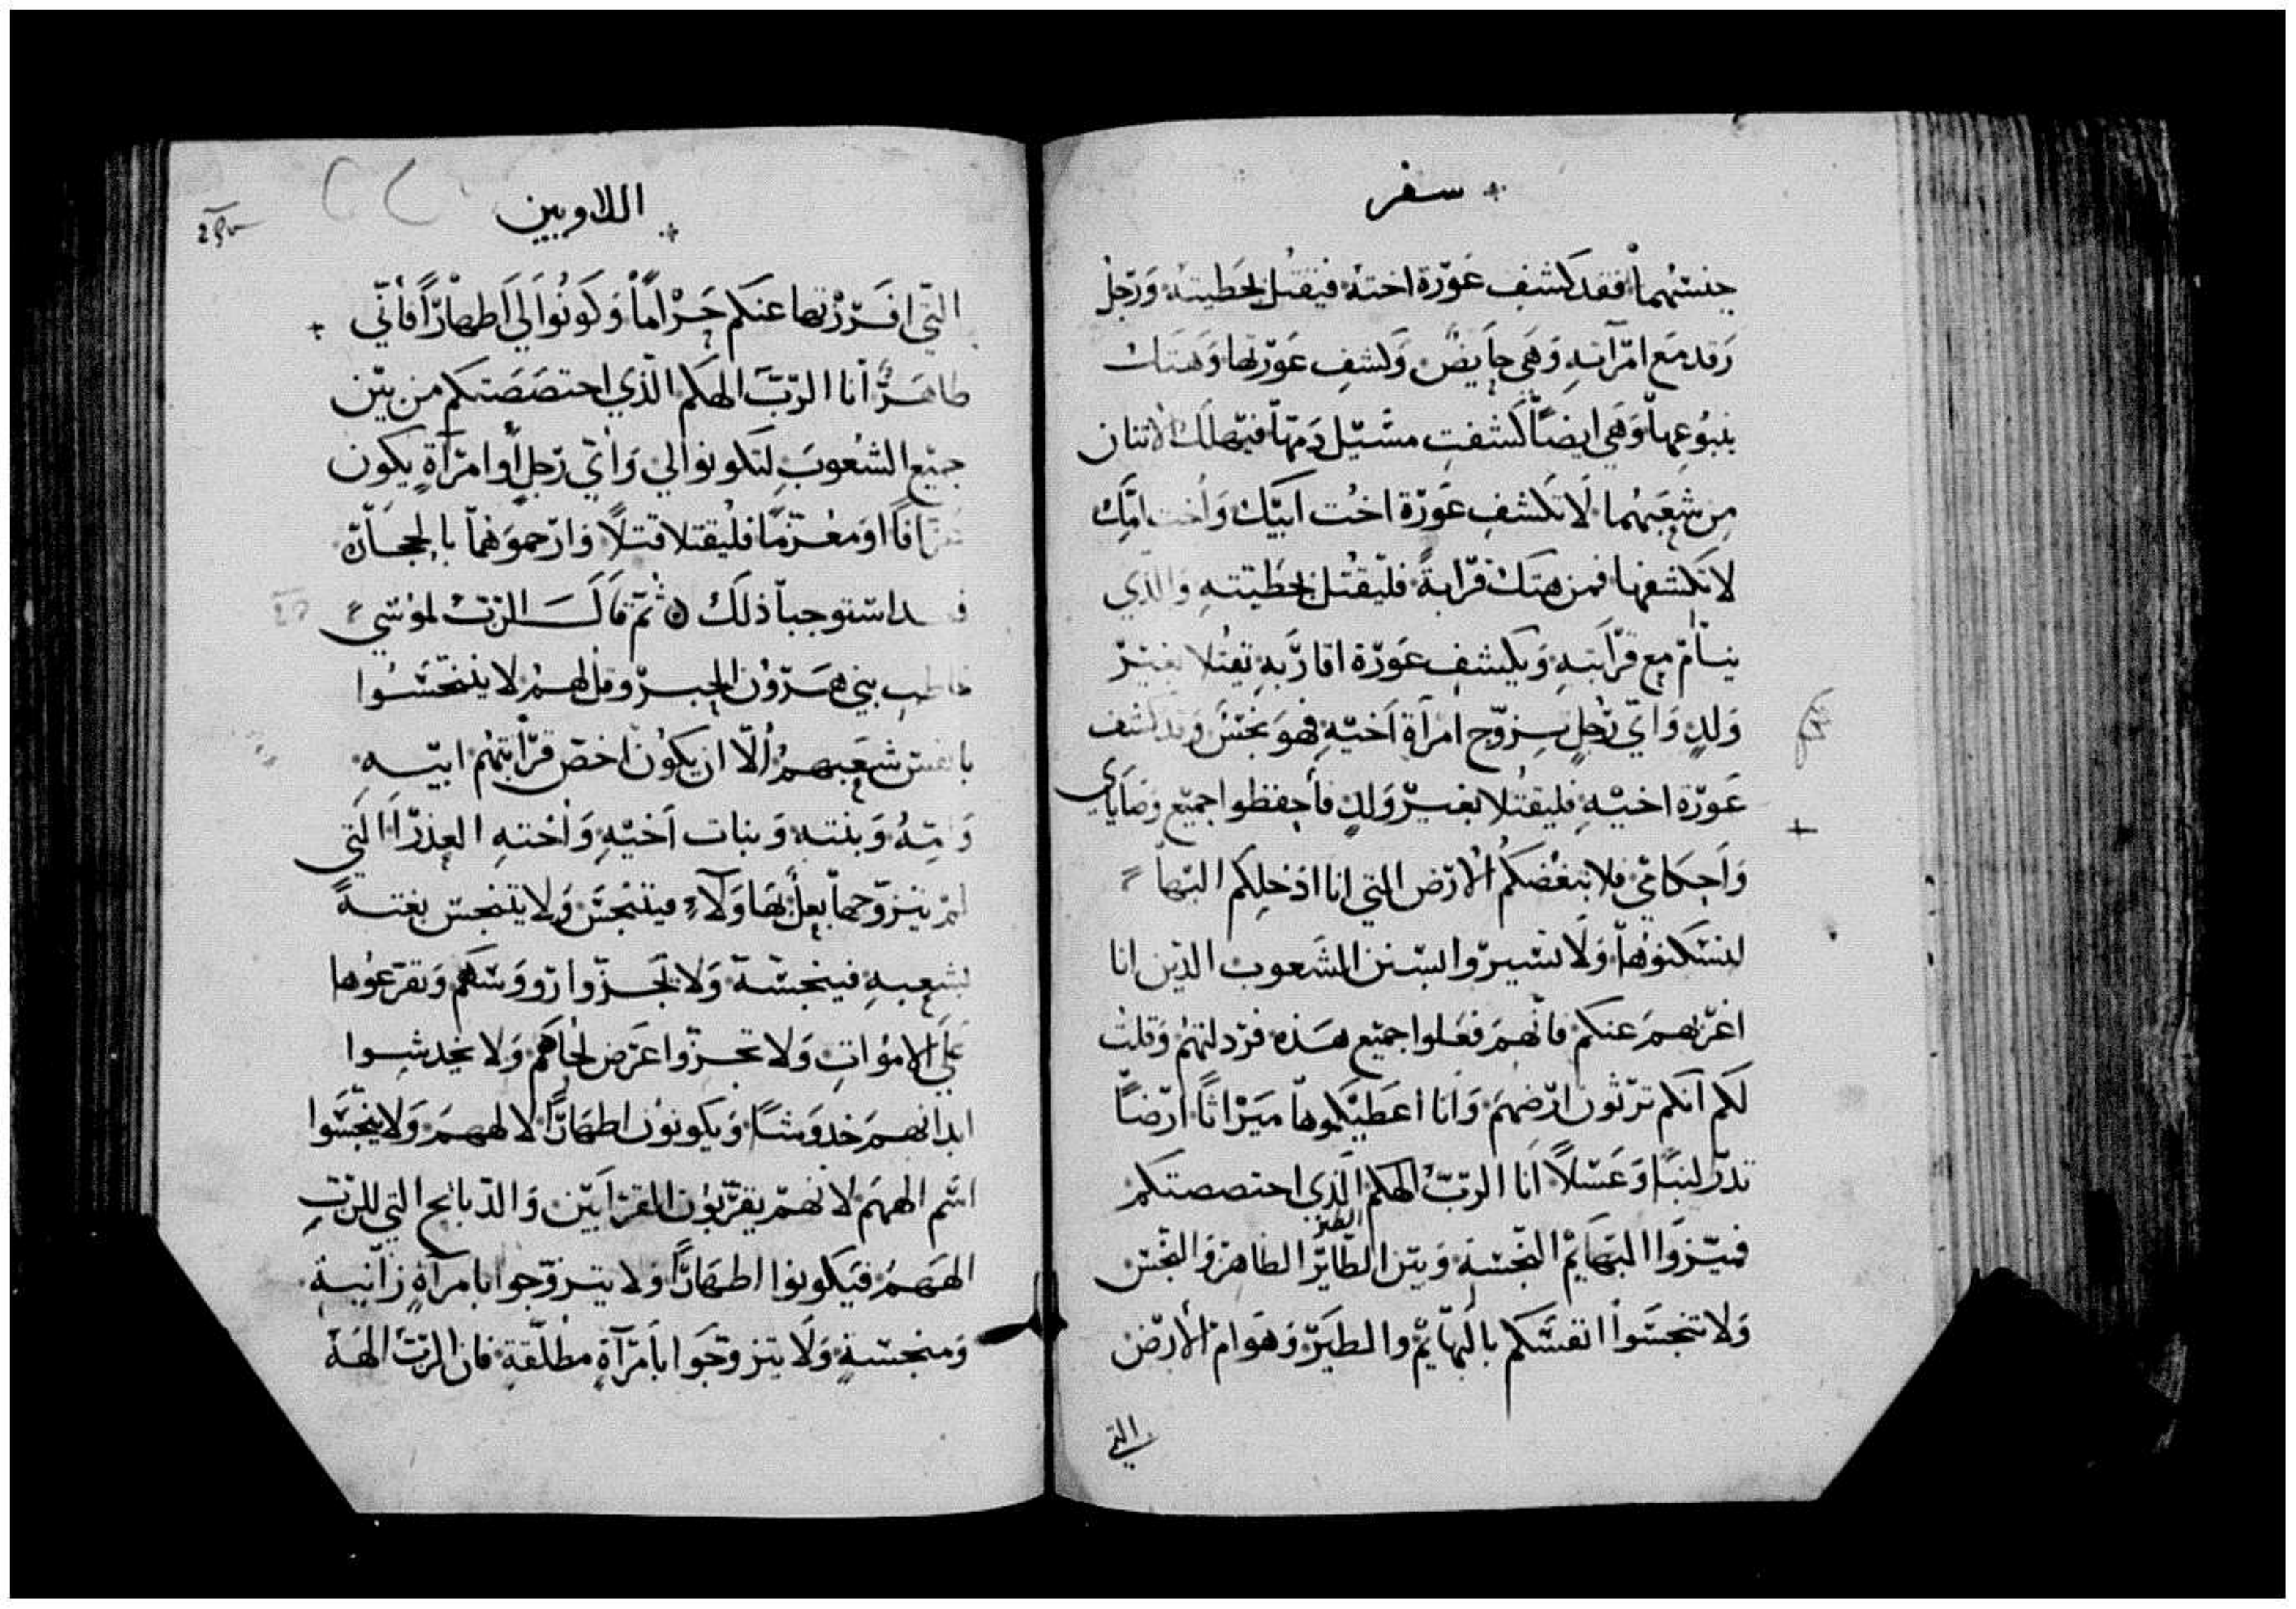 سفر
جنسهما فقد كشف عورة اخته فيقتل بخطيته ورجل
رقد مع امرآته وهي حايض وكشف عورتها وهتك
ينبوعها وهي ايضا كشفت مسيل دمها فيهلك الاتنان
من شعبهما لا تكشف عورة اخت ابيك واخت امك
لا تكشفها فمن هتك قرابة فليقتل بخطيته والذي
ينام مع قرابته ويكشف عورة اقاربه يقتلا بغير
ولد واي رجل يزوج امرآة اخيه فهو نجس وقد كشف
عورة اخيه فليقتلا بغير ولد فأحفظوا جميع وصاياي
وأحكامي فلا تبغضكم الارض التي انا ادخلكم اليها
لتسكنوها ولا تسيروا بسنن الشعوب الذين انا
اغربهم عنكم فأنهم فعلوا جميع هذه فردلتهم وقلت
لكم انكم ترثون ارضهم وانا اعطيكموها ميراثا ارضا
تدر لبنا وعسلا انا الرب الهكم الذي اختصصتكم
الطير
فميزوا البهايم النجسة وبين الطاير الطاهر والنجس
ولا تنجسوا انفسكم بالبهايم والطير وهوام الأرض
التي
اللاويين
التي افرزتها عنكم حراما وكونوا لي اطهارا فأني
طاهر انا الرب الهكم الذي اختصصتكم من بين
جميع الشعوب لتكونوا لي واي رجل أو امرآة يكون
عرافا او معزما فليقتلا قتلا وارجموهما بالحجارة
فقد استوجبا ذلك ۞ ثم قال الرب لموسي
خاطب بني هرون الحبر وقل لهم لا يتنجسوا
بانفس شعبهم ألا ان يكون اخص قرابتهم ابيه
وامه وبنته وبنات اخيه واخته العذرا التي
لم يتزوجها بعل بهاولاء فيتنجس ولا يتنجس بغتة
بشعبه فينجسه ولا تجزوا رووسكم وتقرعوها
علي الاموات ولا تحزوا عرض لحاكم ولا يخدشوا
ابدانهم خدوشا ويكونون اطهارا لالههم ولا ينجسوا
اسم الههم لانهم يقربون القرابين والذبايح التي للرب
الههم فيكونوا اطهارا ولا يتزوجوا بامرآة زانية
ومنجسة ولا يتزوجوا بأمرآة مطلقة فان الرب الهه